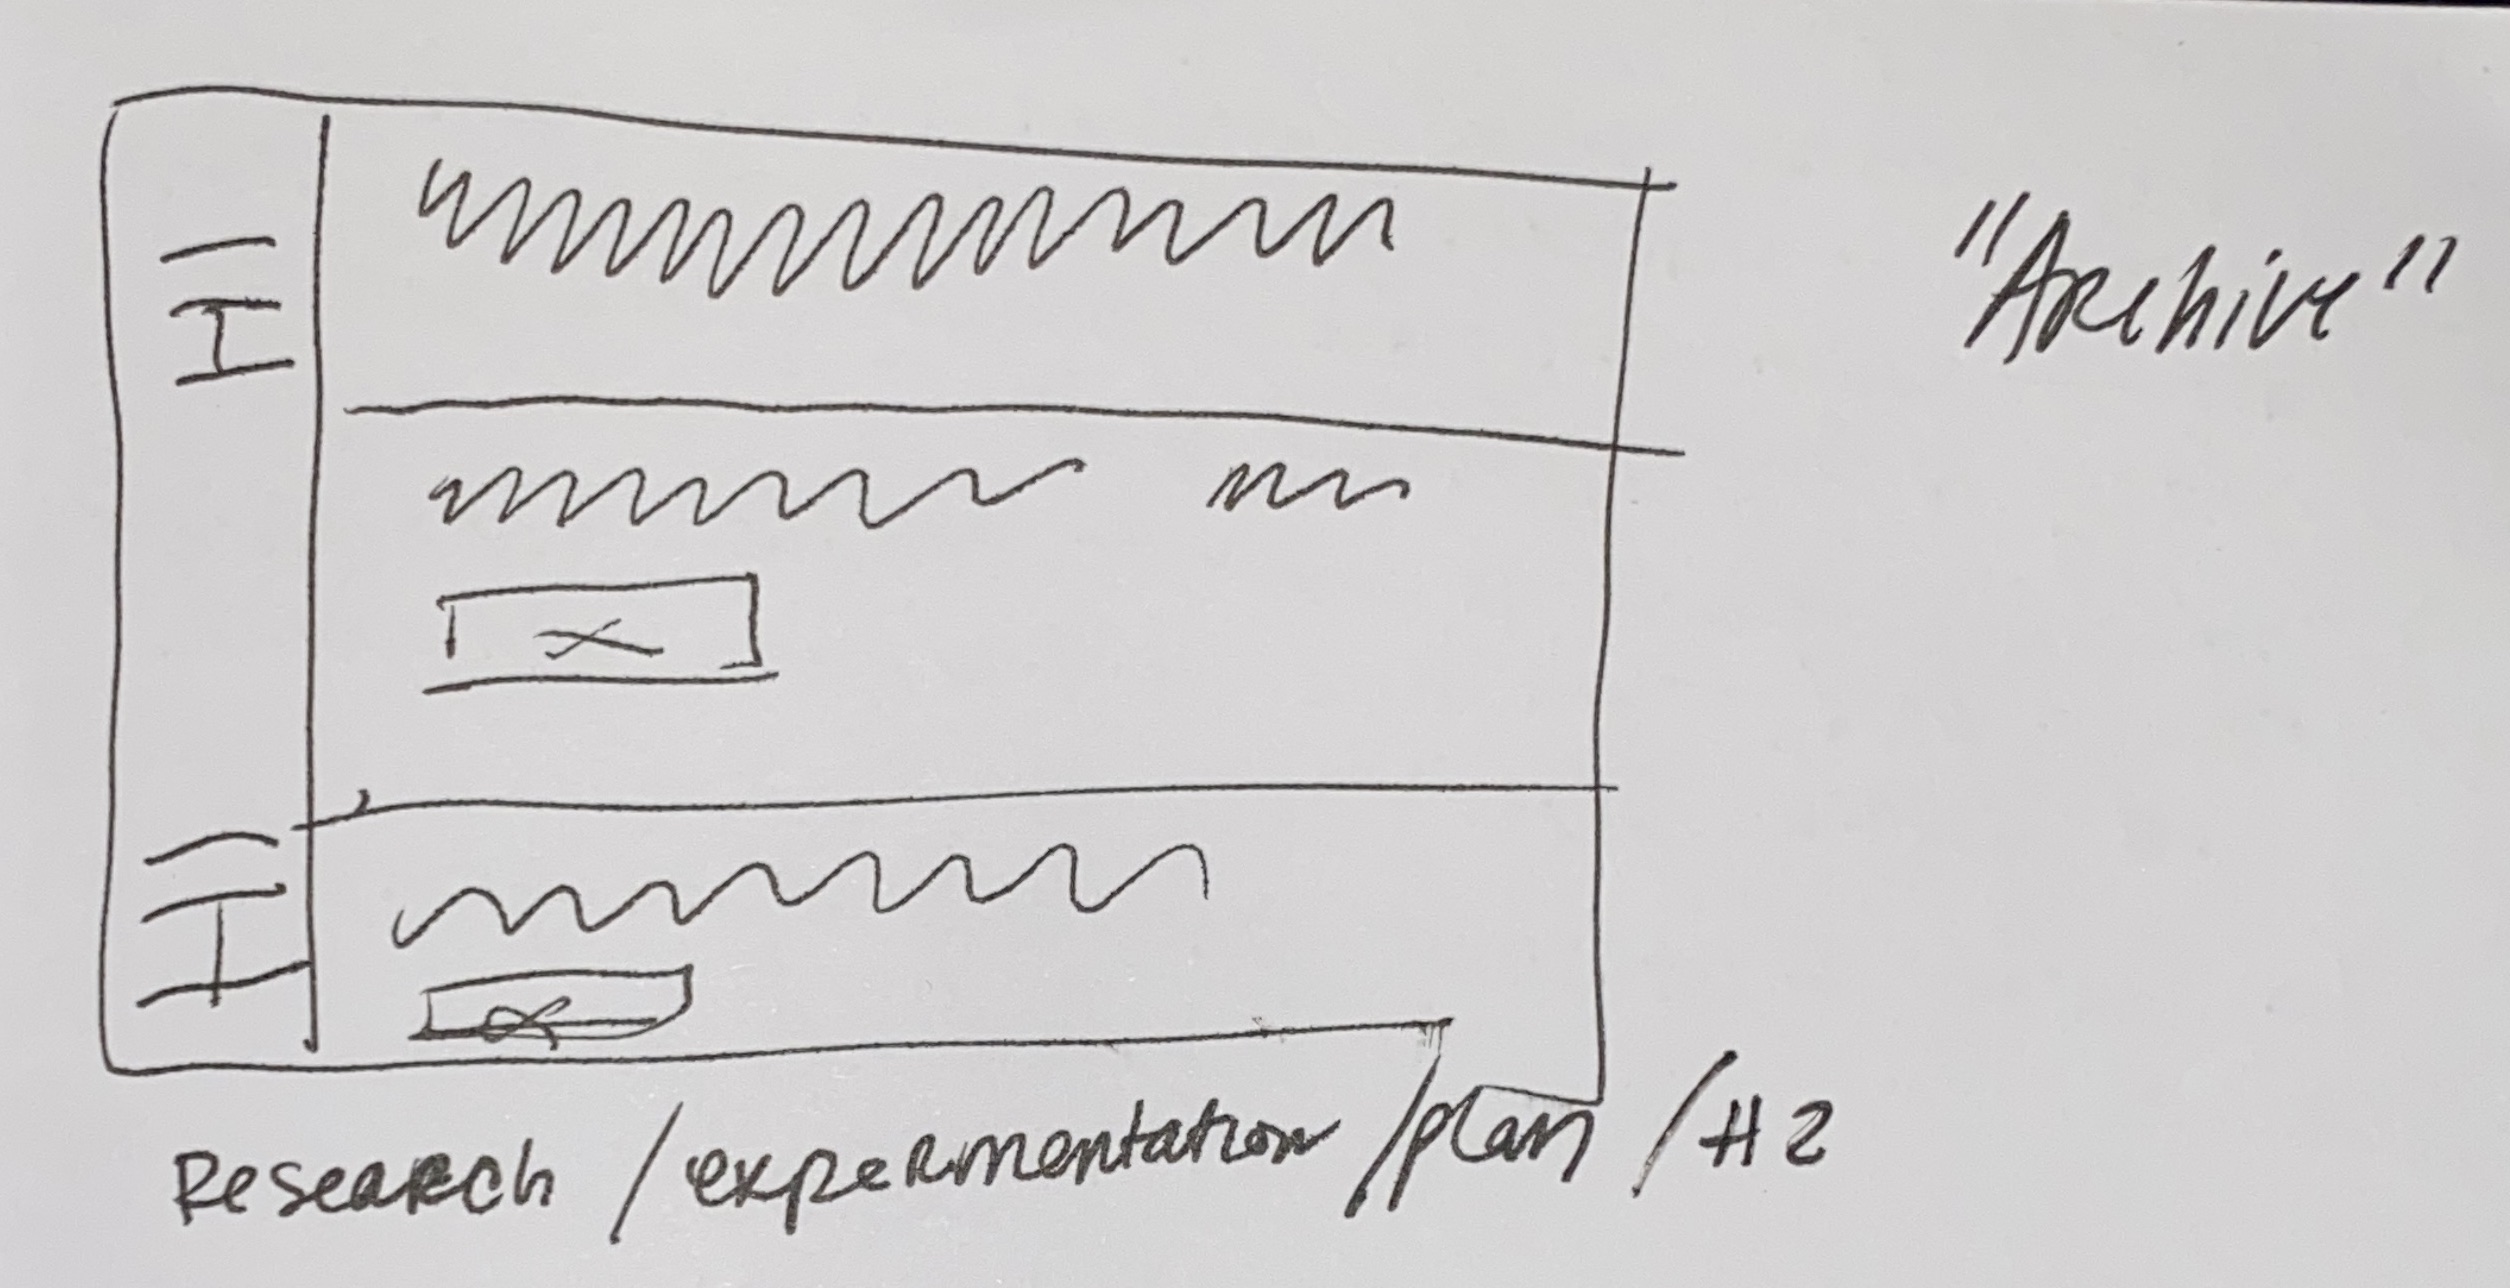 "Archive"
Research / expermentation / plan / #2